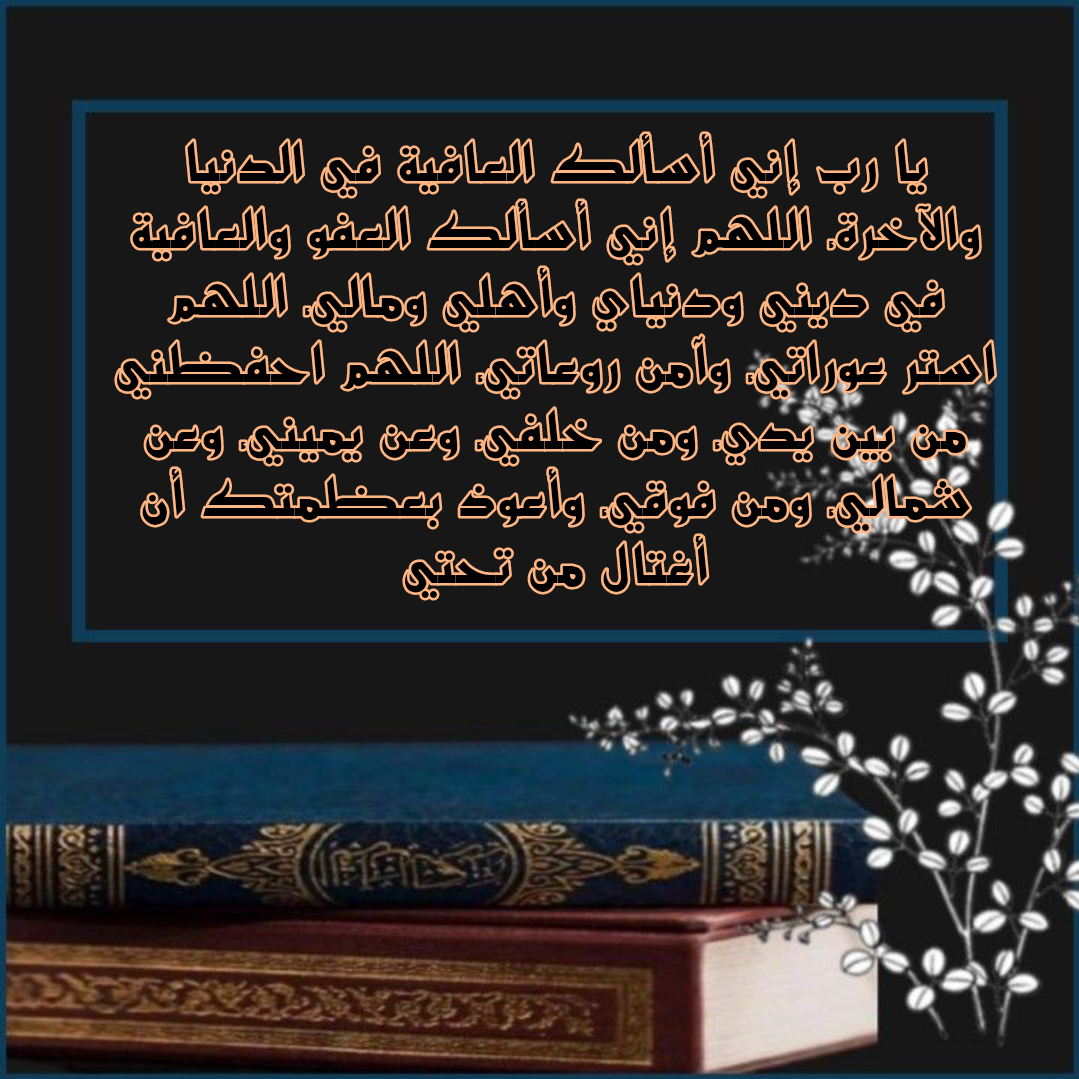 يا رب إني أسألك العافية في الدنيا
والآخرة، اللهم إني أسألك العفو والعافية
في ديني ودنياي وأهلي ومالي، اللهم
استر عوراتي، وآمن روعاتي، اللهم احفظني
من بين يدي، ومن خلفي، وعن يميني، وعن
شمالي، ومن فوقي، وأعوذ بعظمتك أن
أغتال من تحتي